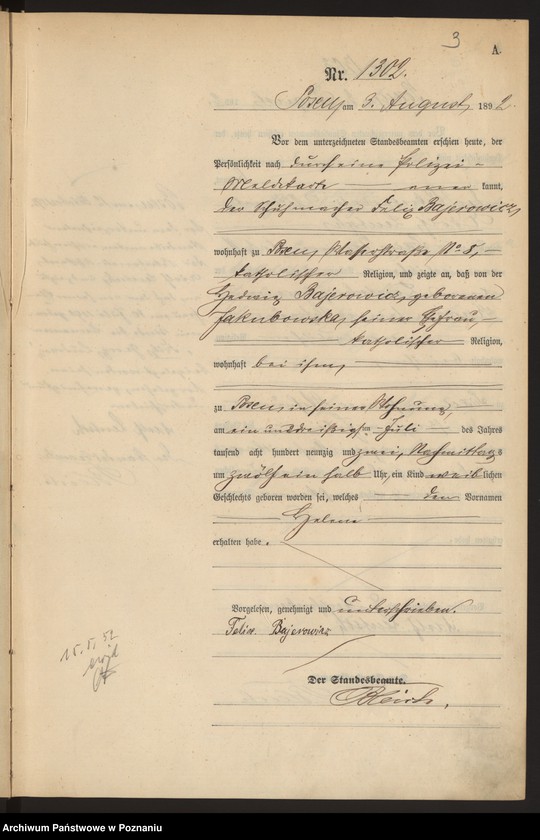 3
A.
Nr. 1302.
Posen, am 3. August 1892.
Vor dem unterzeichneten Standesbeamten erschien heute, der
Persönlichkeit nach durch eine Polizei-
Meldekarte anerkannt,
der Schuhmacher Felix Bajerowicz,
wohnhaft zu Posen, No 5,
katholischer Religion, und zeigte an, daß von der
Hedwig Bajerowicz, geborenen
Jakubowska, seiner Ehefrau,
katholischer Religion,
wohnhaft bei ihm,
zu Posen, in seiner Wohnung,
am ein und dreißigsten Juli des Jahres
tausend acht hundert neunzig und zwei, Nachmittags
um zwölf ein halb Uhr, ein Kind weiblichen
Geschlechts geboren worden sei, welches den Vornamen
Helene
erhalten habe.
Vorgelesen, genehmigt und unterschrieben.
Felix Bajerowicz
Der Standesbeamte.
15. 5. 52
Archiwum Państwowe w Poznaniu